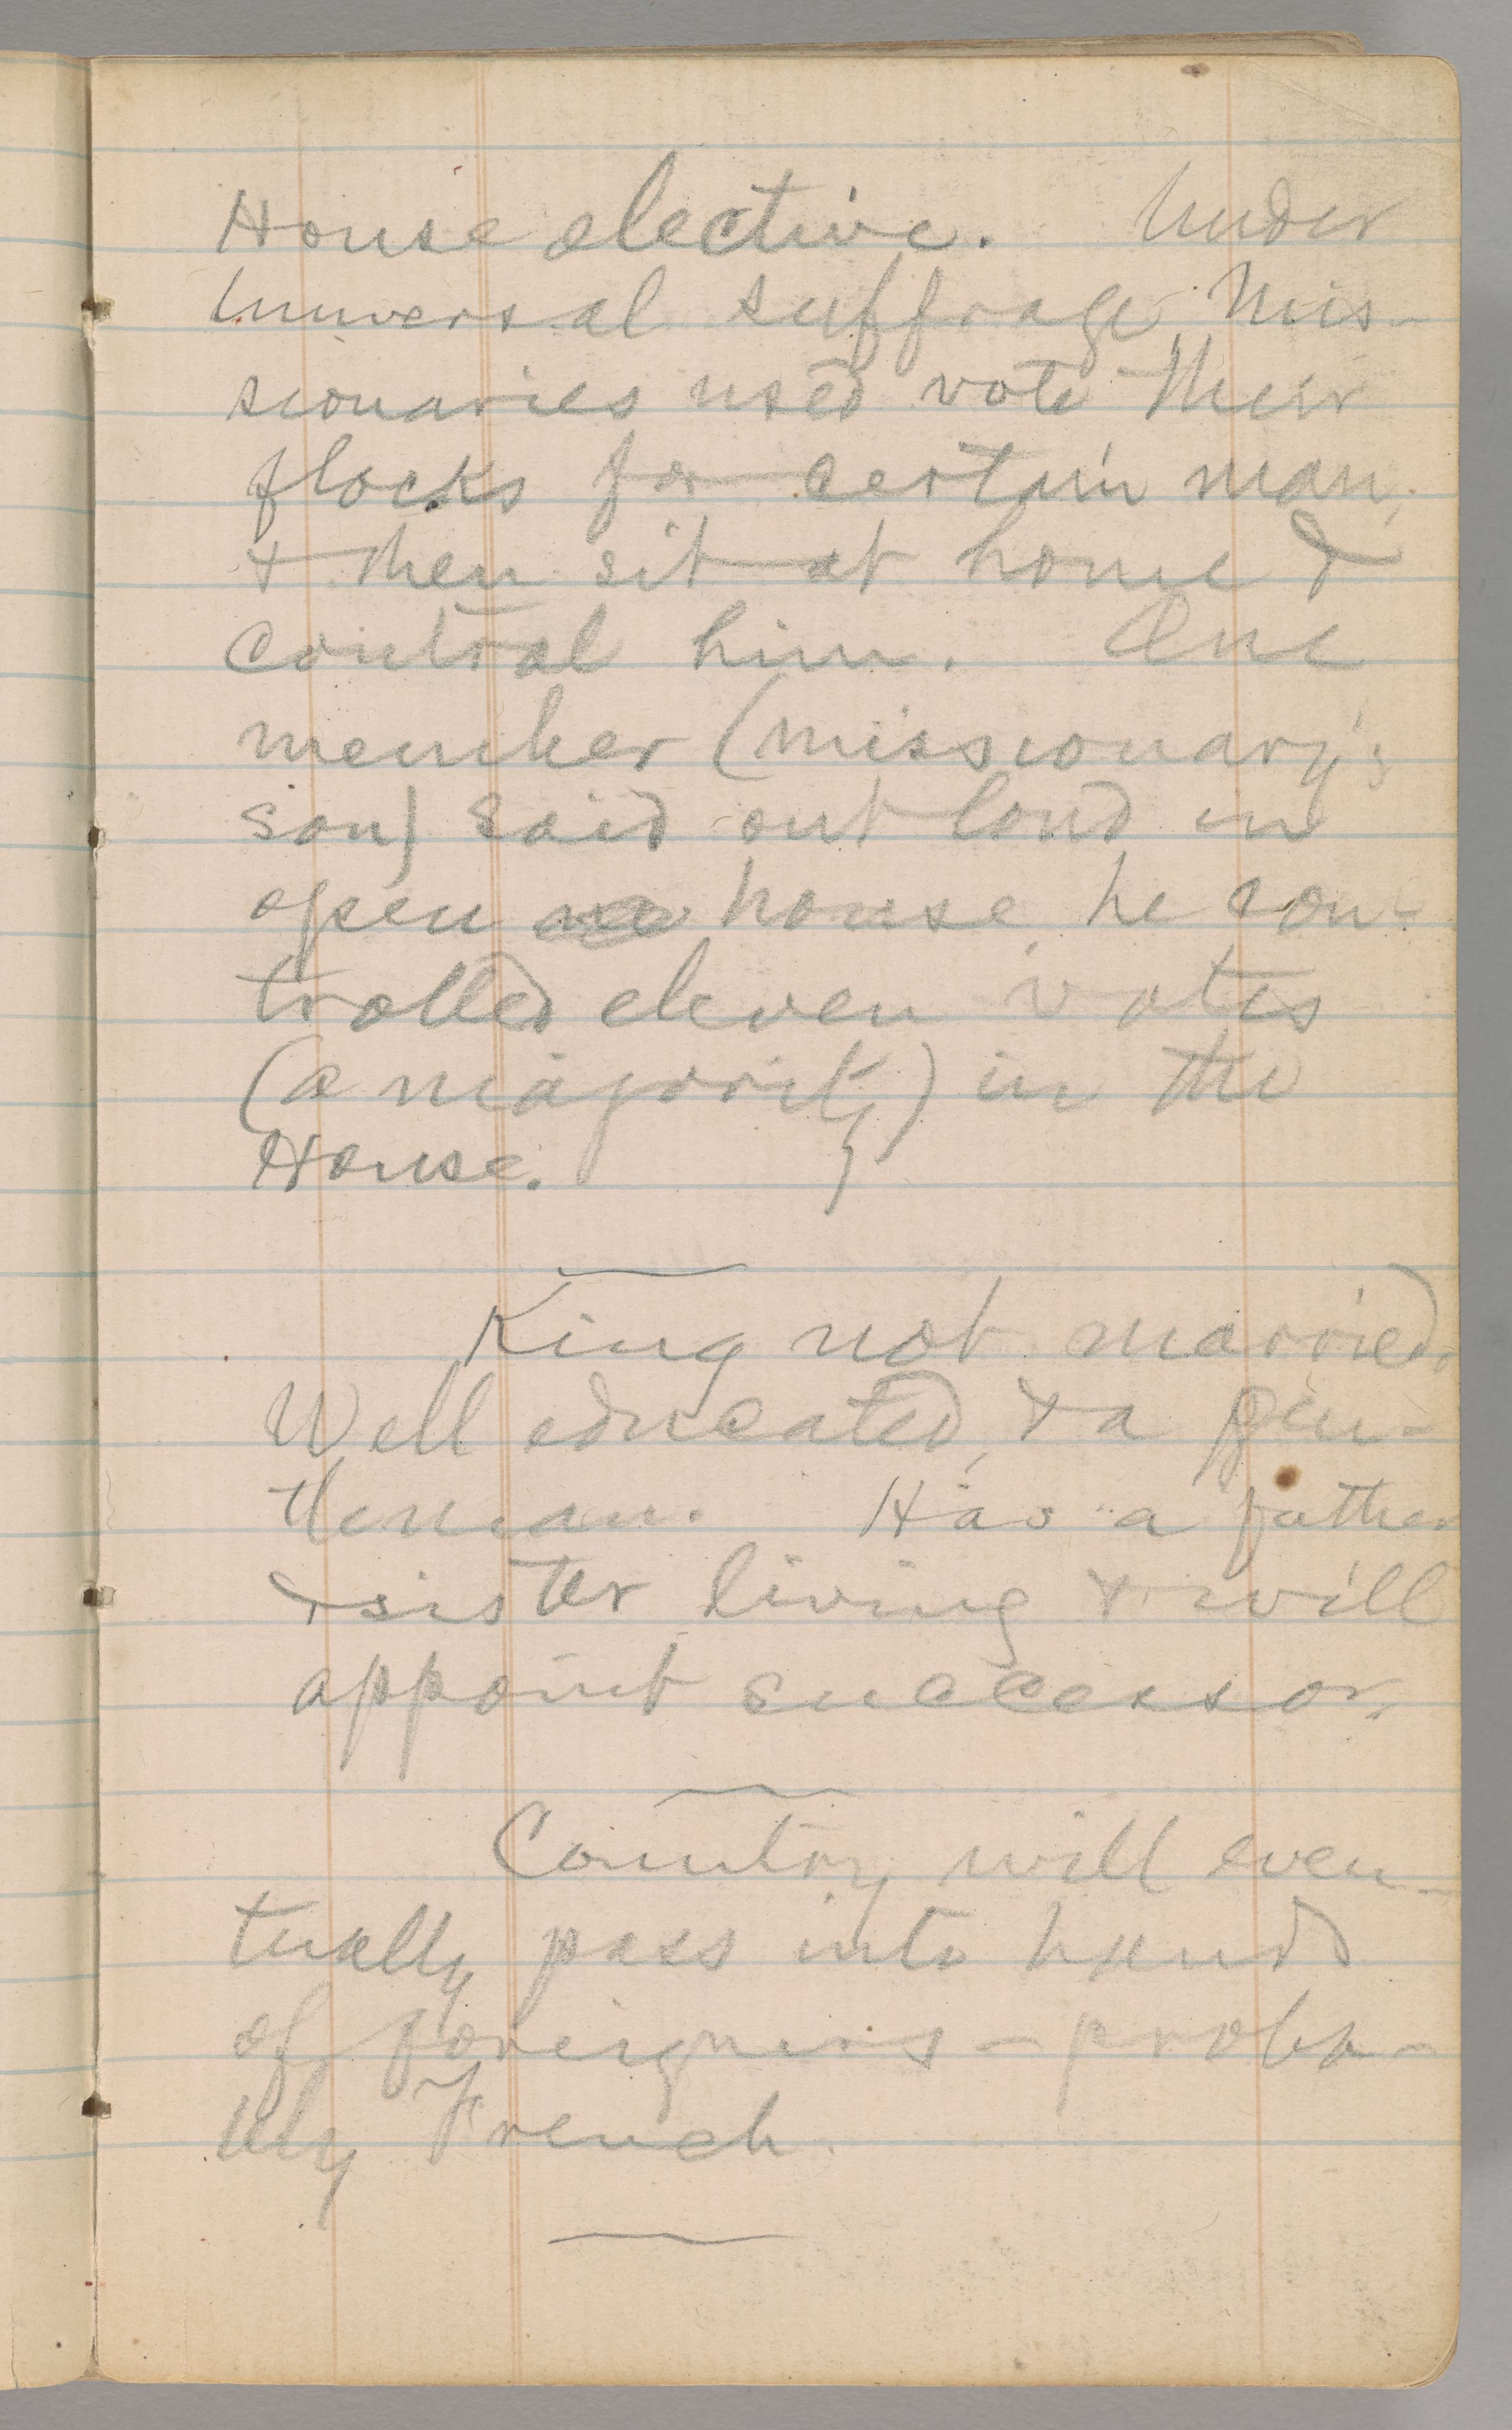 House elective. Under
universal suffrage, mis-
sionaries used vote their
flocks for certain man,
& then sit at home &
control him. One
member (missionary's
son) said out loud in
open house, he con-
trolled eleven votes
(a majority) in the
House.
King not married.
Well educated, & a gen-
tleman. Has a father
& sister living & will
appoint successor.
Country will even-
tually pass into hands
of foreigners - proba-
bly French.